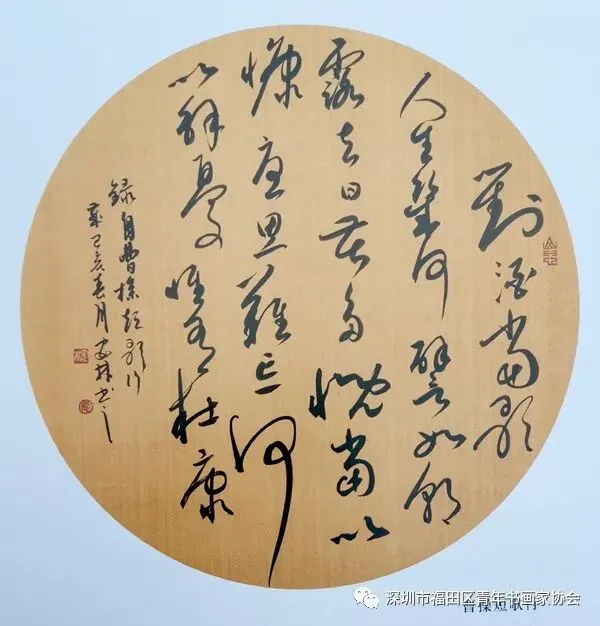 對酒當歌
人生幾何譬如朝
露去日苦多慨當以
慷憂思難忘何
以解憂惟有杜康
録自曹操短歌行
歲己亥春月林書之
深圳市福田区青年书画家协会
曹操短歌行